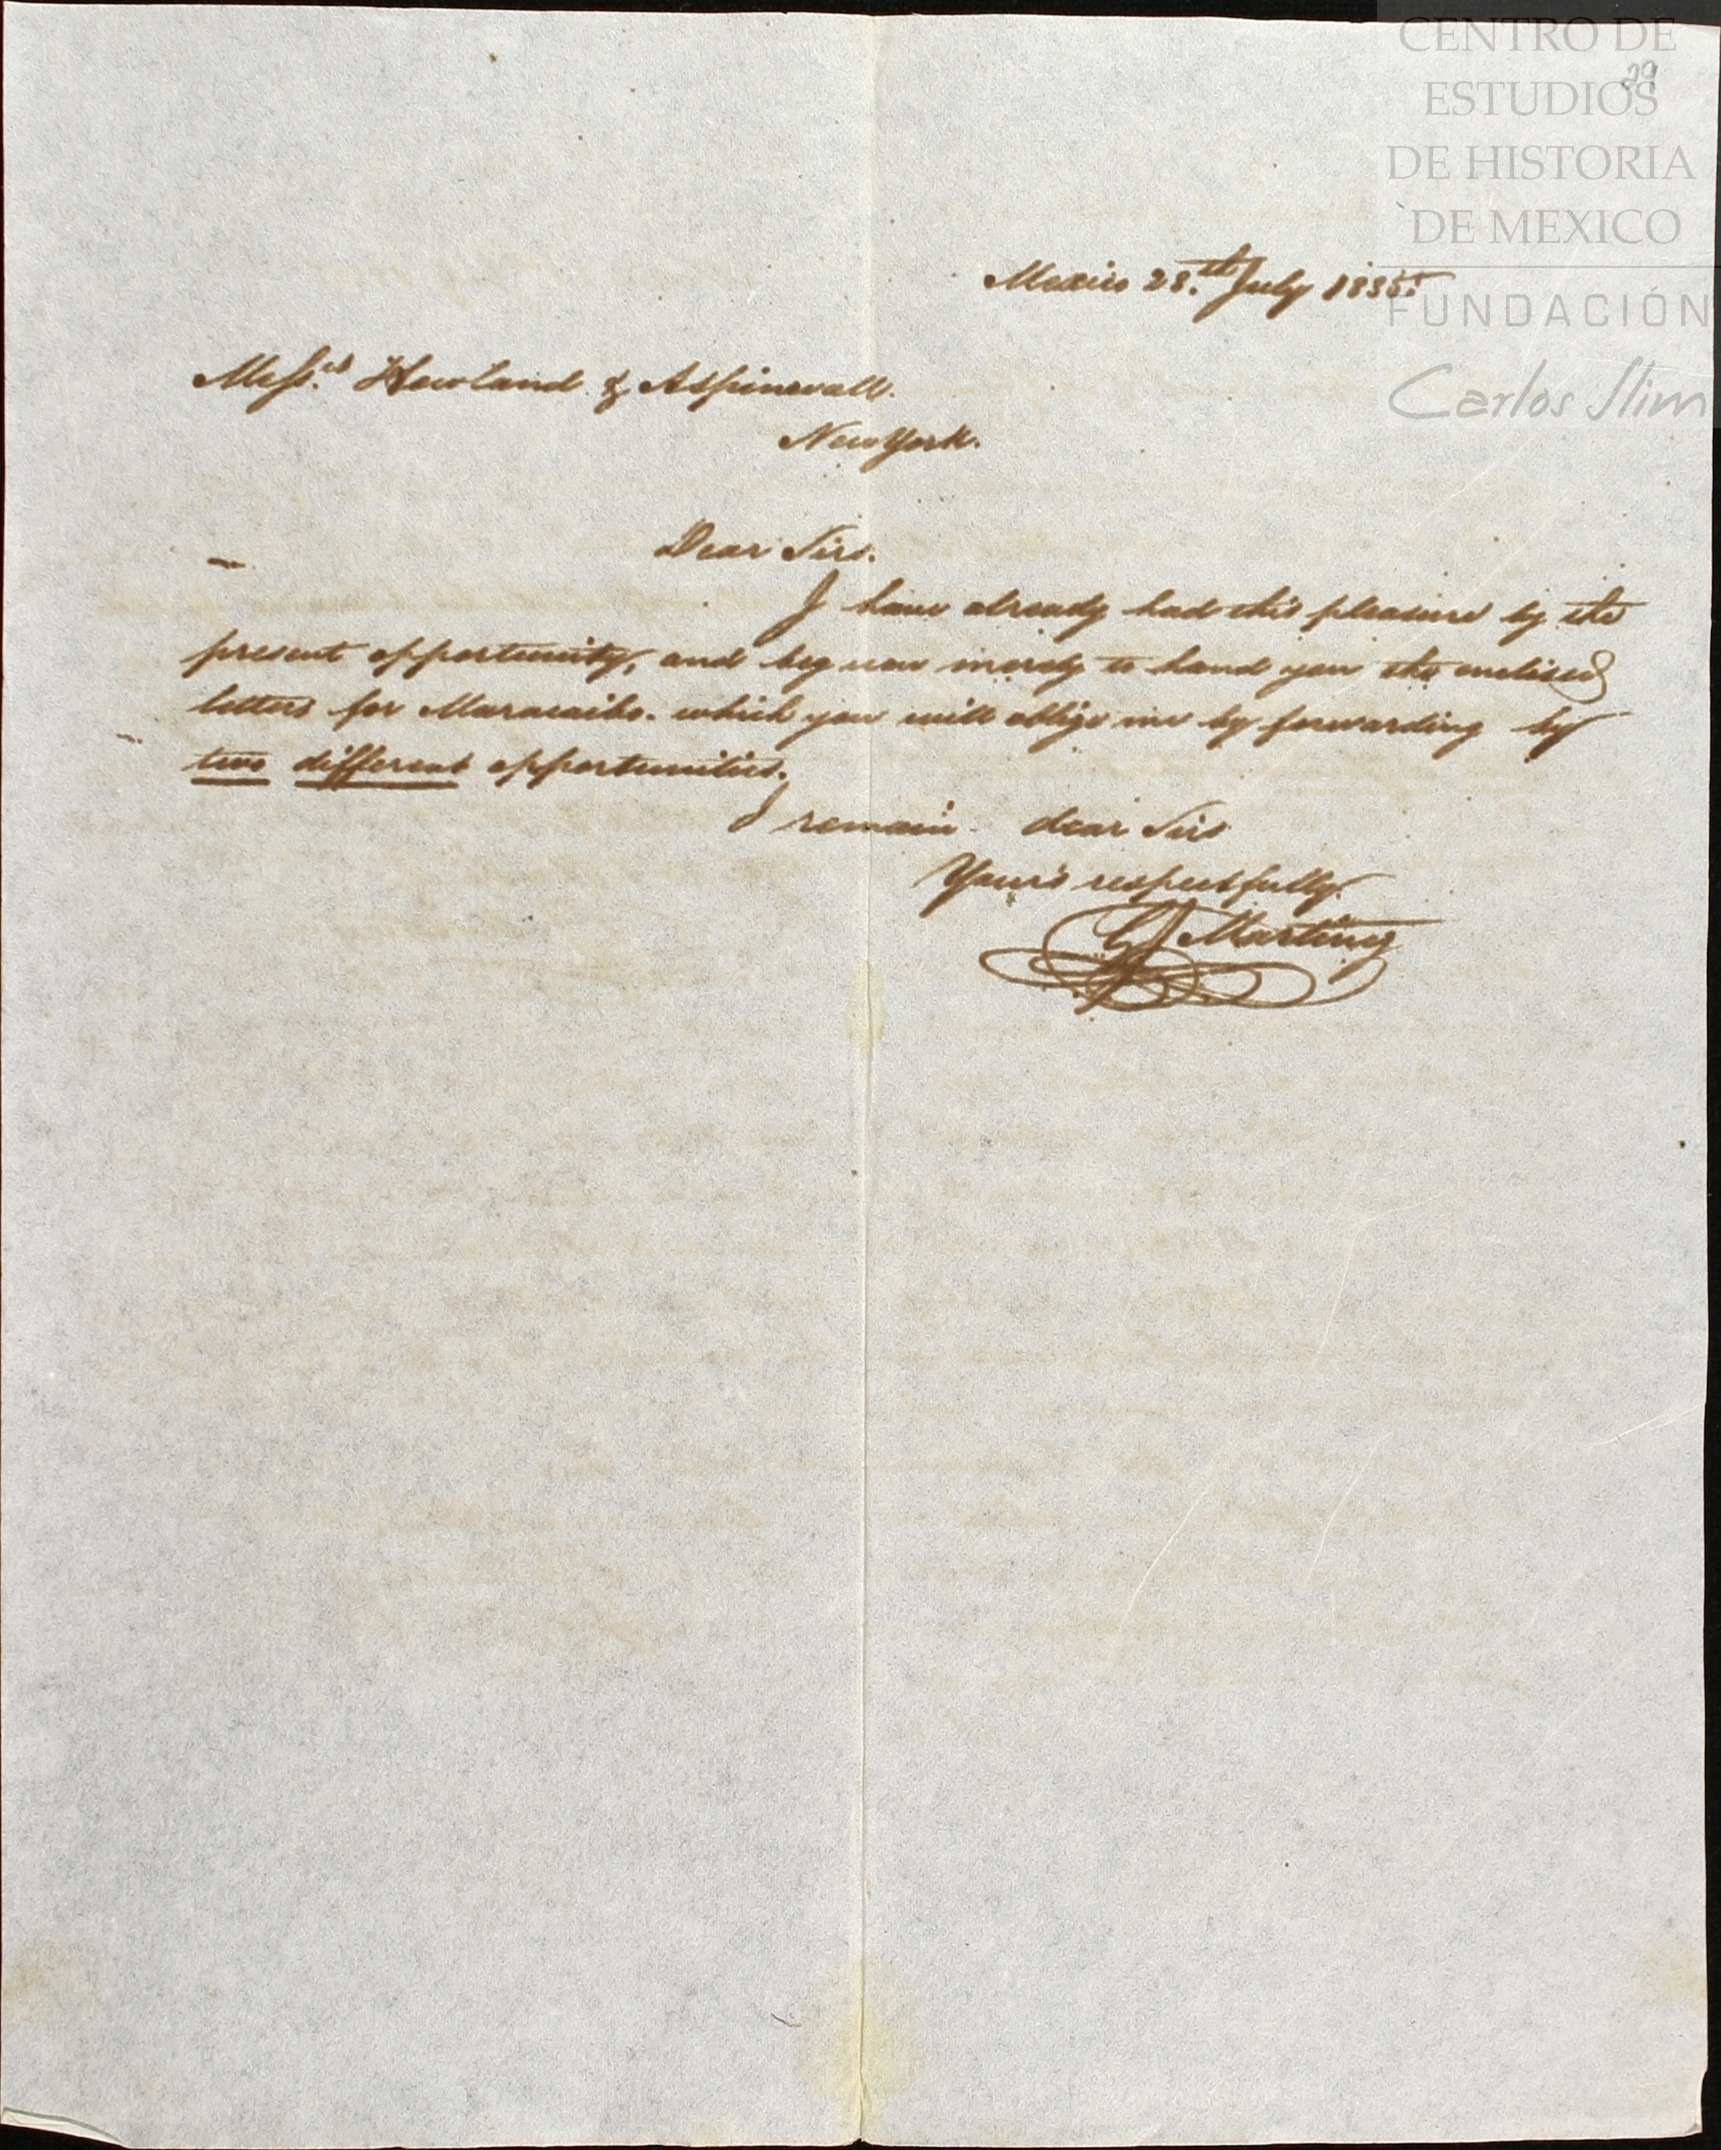 CENTRO DE
ESTUDIOS
DE HISTORIA
DE MEXICO
FUNDACIÓN
Carlos Slim
29
Mexico 28.th July 1835.
Mess.rs Howland & Aspinwall.
New York.
Dear Sirs.
I have already had this pleasure by the
present opportunity, and beg now merely to hand you the enclosed
letters for Maracaibo. which you will oblige me by forwarding by
two different opportunities.
I remain dear Sirs
Your's respectfully.
Martinez